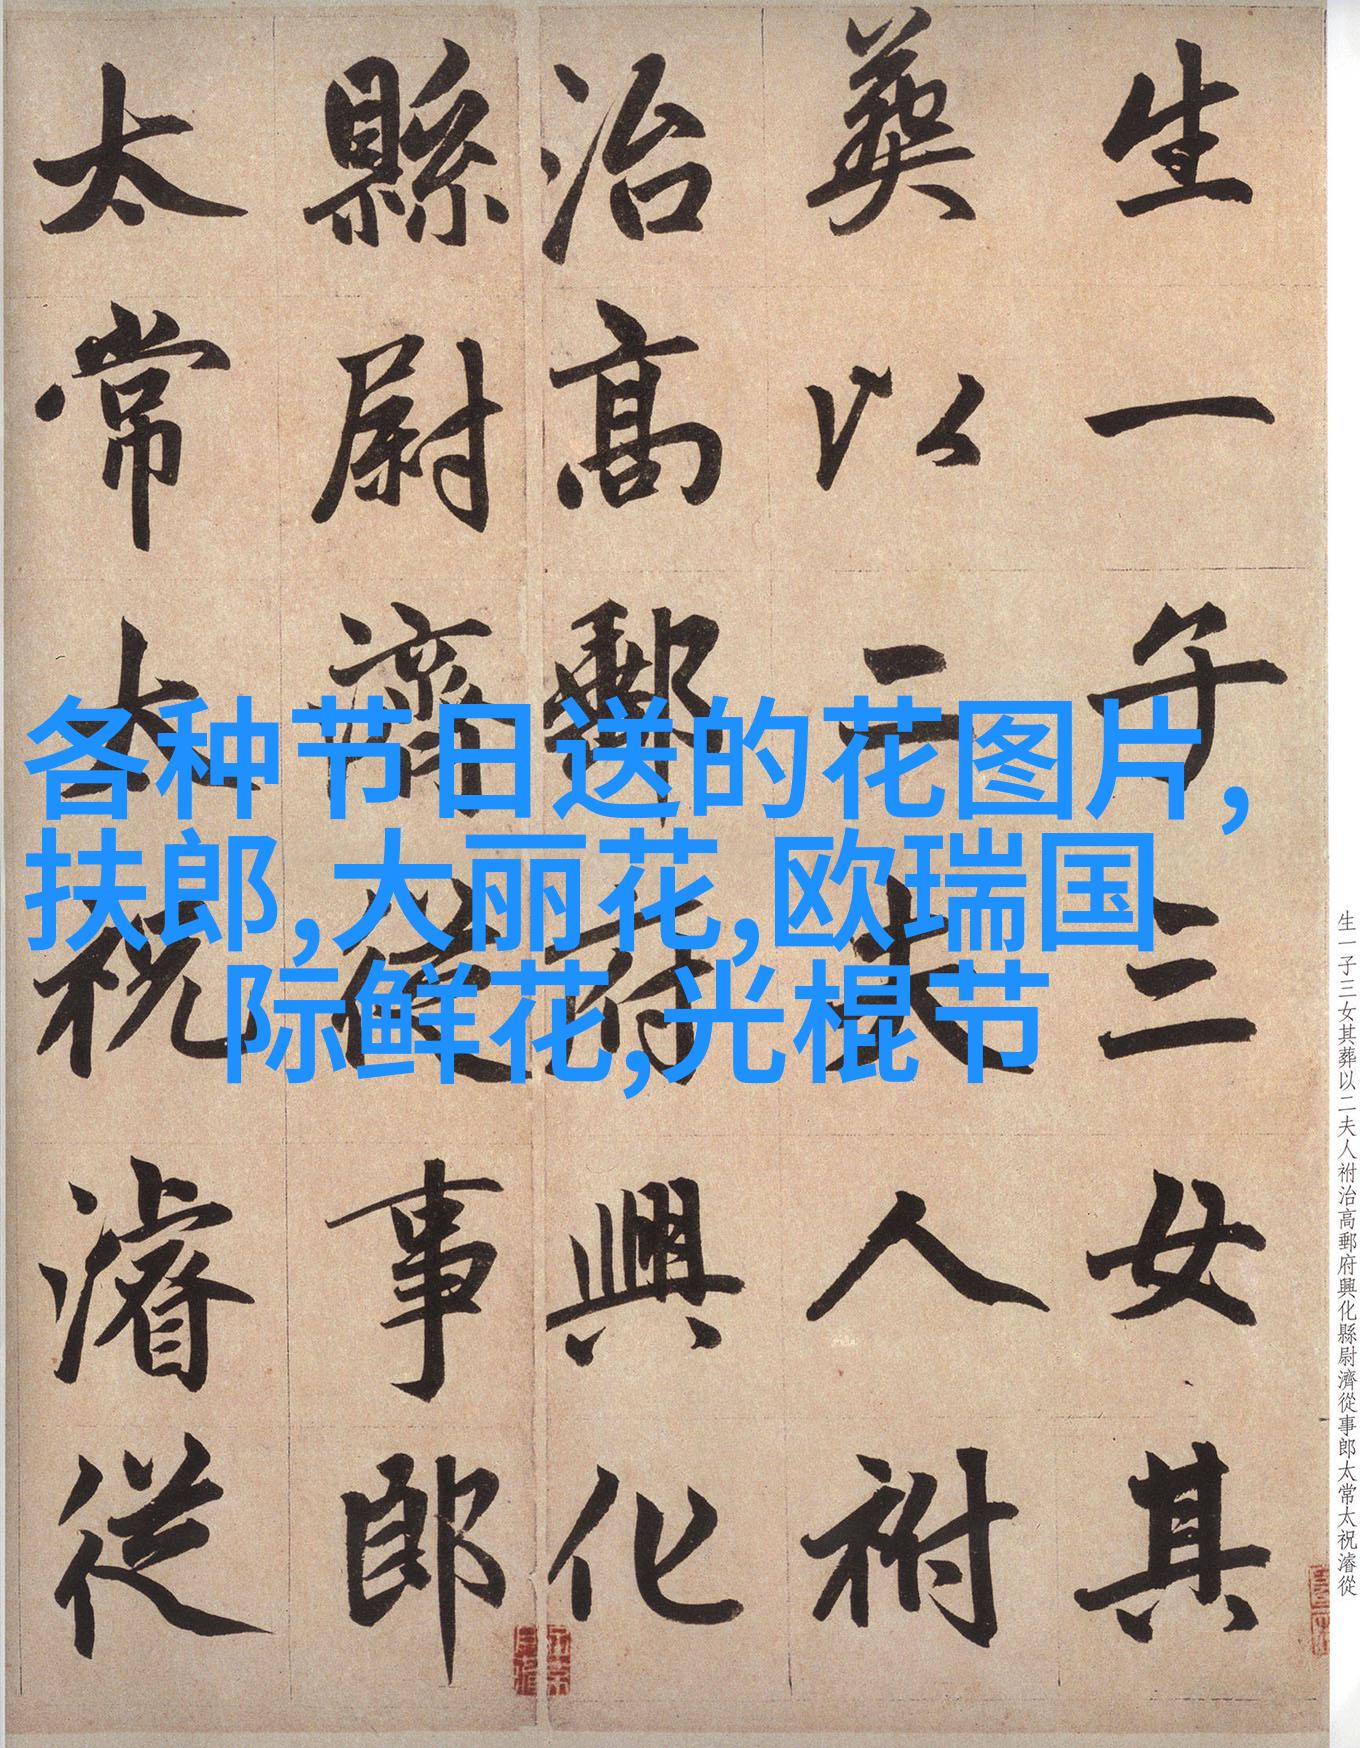 生一子三女其
葬以二夫人祔
治高郵府興化
縣尉濟從事郎
太常太祝濬從
各种节日送的花图片,
扶郎,大丽花,欧瑞国
际鲜花,光棍节
生一子三女其葬以二夫人祔治高郵府興化縣尉濟從事郎太常太祝濬從